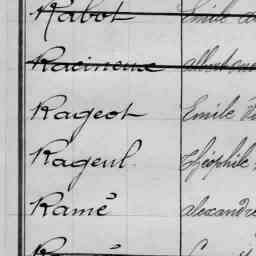 Rabot Emile
Racineux albert
Rageot Emile
Rageul théophile
Ramé alexandre